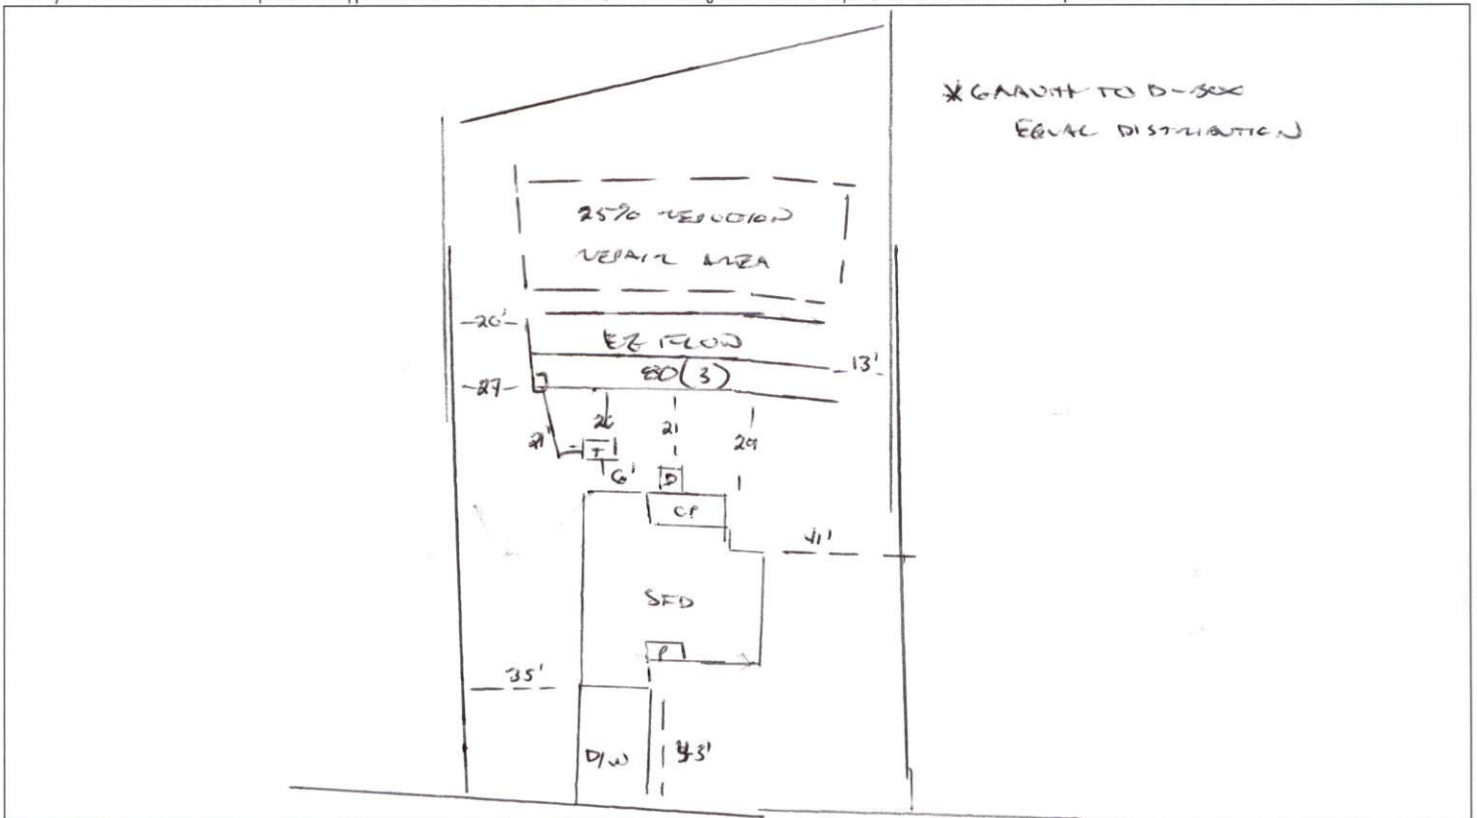 * GRAVITY TO D-BOX
EQUAL DISTRIBUTION
25% REDUCTION
REPAIR AREA
-20'-
EZ FLOW
80(3)
-13'-
-27-
21
29
T
6'
D
CP
41'
SFD
P
35'
D/W
43'